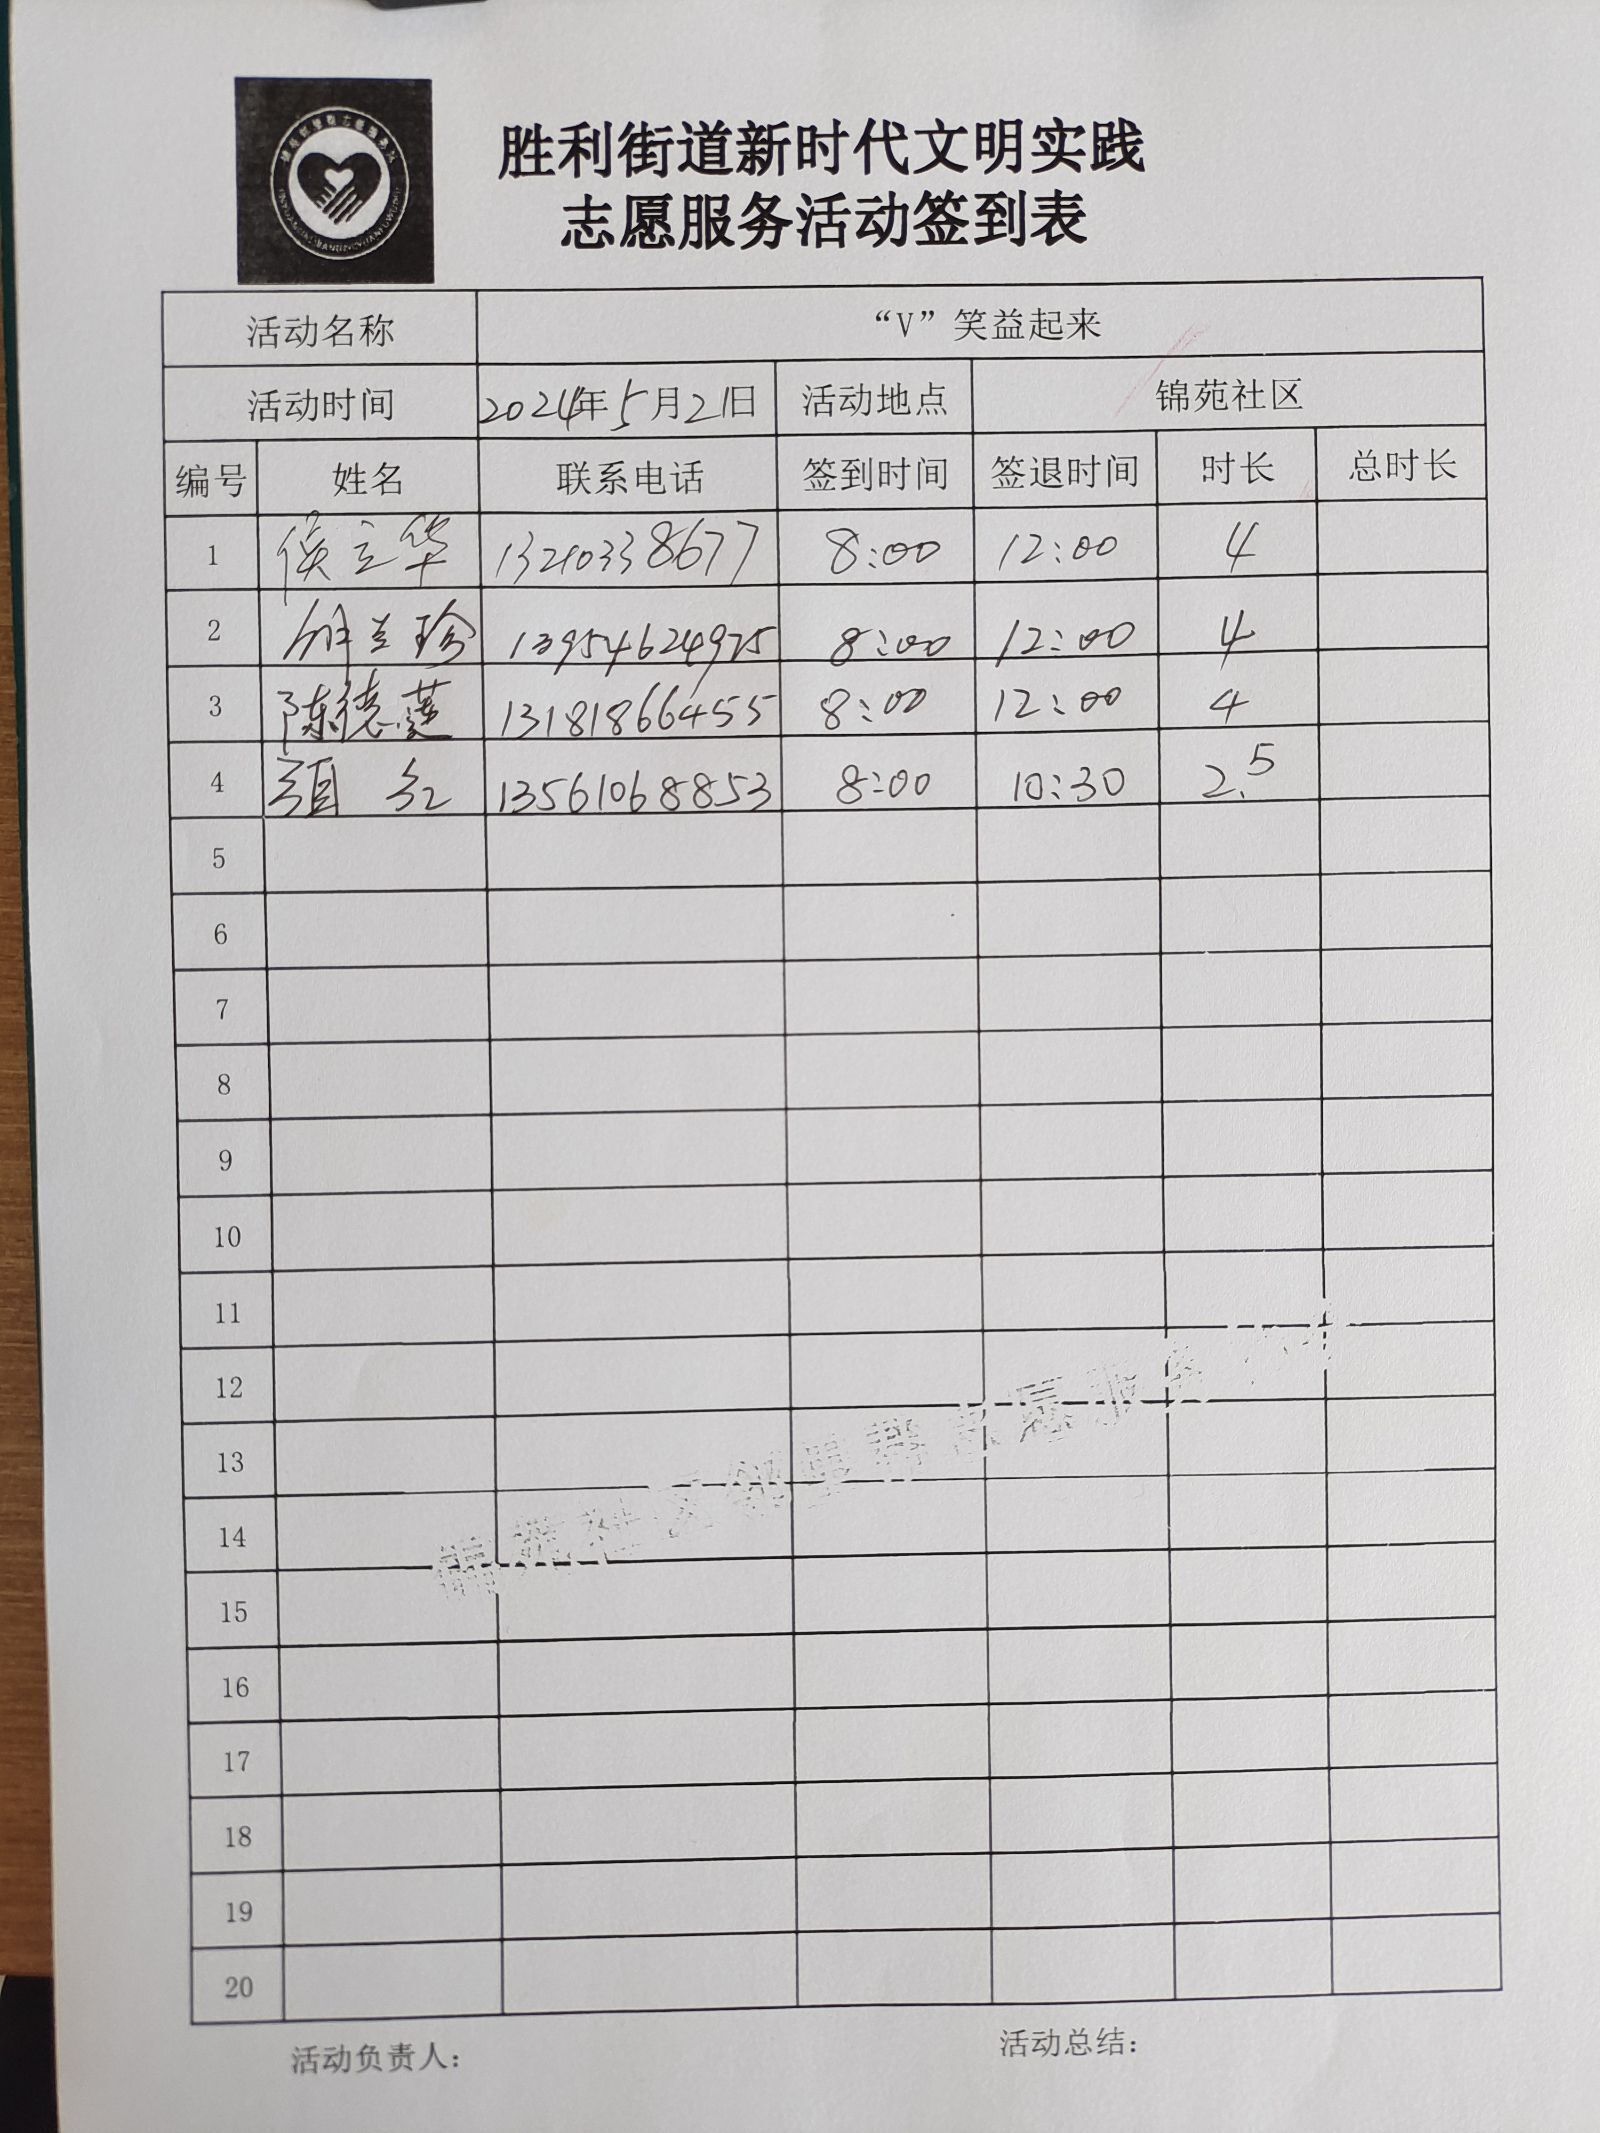 胜利街道新时代文明实践
志愿服务活动签到表
活动名称 “V”笑益起来
活动时间 2024年5月21日 活动地点 锦苑社区
编号 姓名 联系电话 签到时间 签退时间 时长 总时长
1 侯立华 13210338677 8:00 12:00 4
2 兰珍 13954624975 8:00 12:00 4
3 陈德莲 13181866455 8:00 12:00 4
4 红 13561068853 8:00 10:30 2.5
5
6
7
8
9
10
11
12
13
14
15
16
17
18
19
20
锦苑社区邻里帮志愿服务
活动负责人: 活动总结: